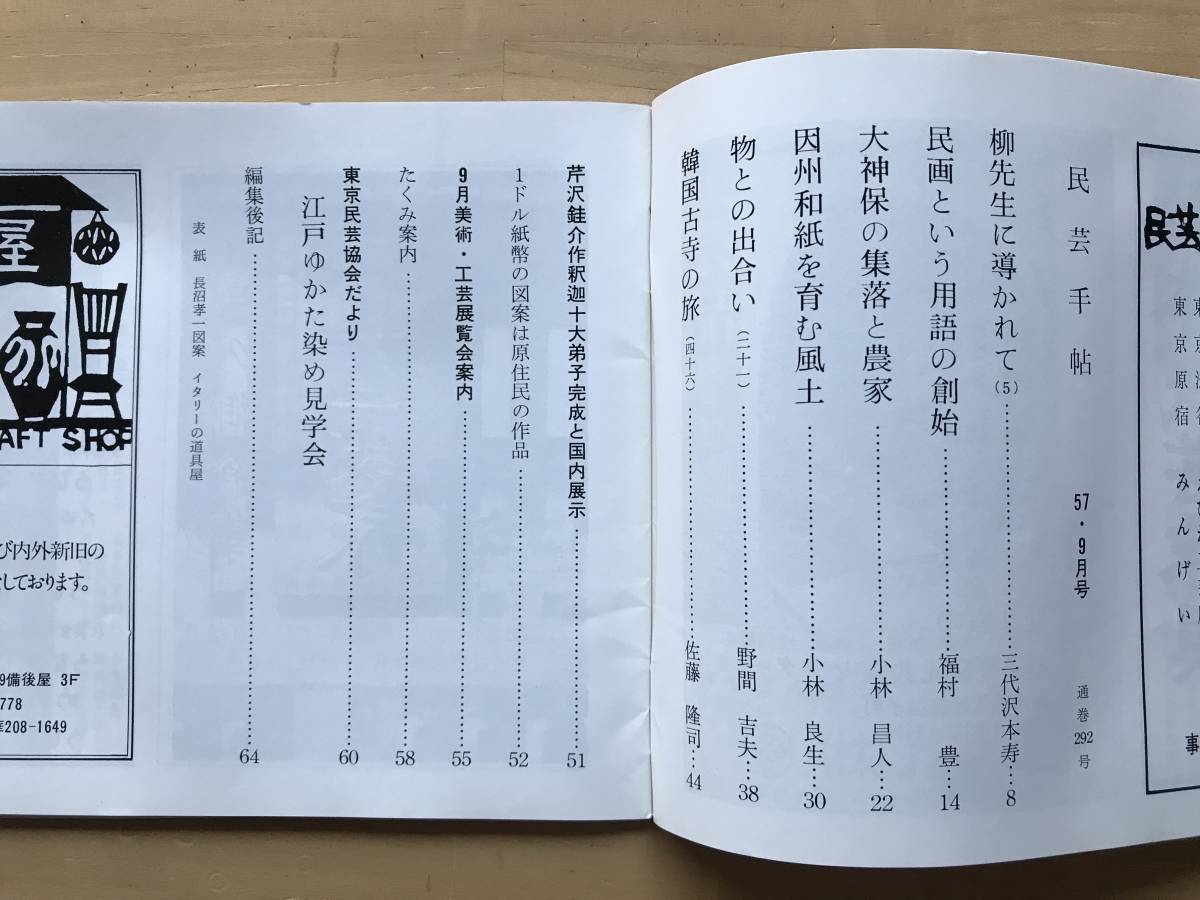 民芸手帖 57・9月号 通巻292号
柳先生に導かれて(5)……三代沢本寿…8
民画という用語の創始……福村 豊…14
大神保の集落と農家……小林 昌人…22
因州和紙を育む風土……小林 良生…30
物との出合い(二十一)……野間 吉夫…38
韓国古寺の旅(四十六)……佐藤 隆司…44
芹沢銈介作釈迦十大弟子完成と国内展示……51
1ドル紙幣の図案は原住民の作品……52
9月美術・工芸展覧会案内……55
たくみ案内……58
東京民芸協会だより……60
江戸ゆかた染め見学会
編集後記……64
表 紙 長沼孝一図案 イタリーの道具屋
屋
AFT SHOP
び内外新旧の
しております。
9備後屋 3F
778
208-1649
民芸
東京原宿 みんげい